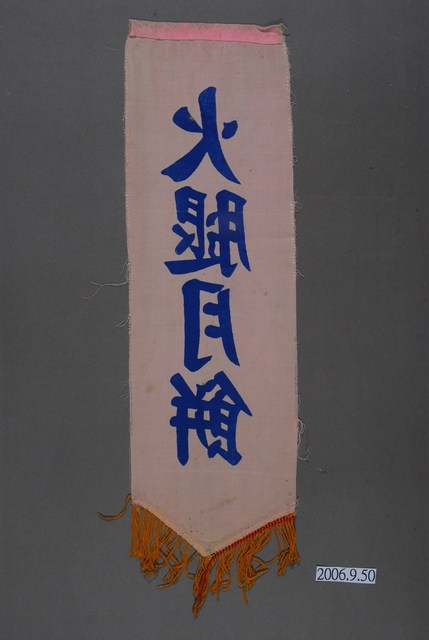 火腿月餅
2006.9.50